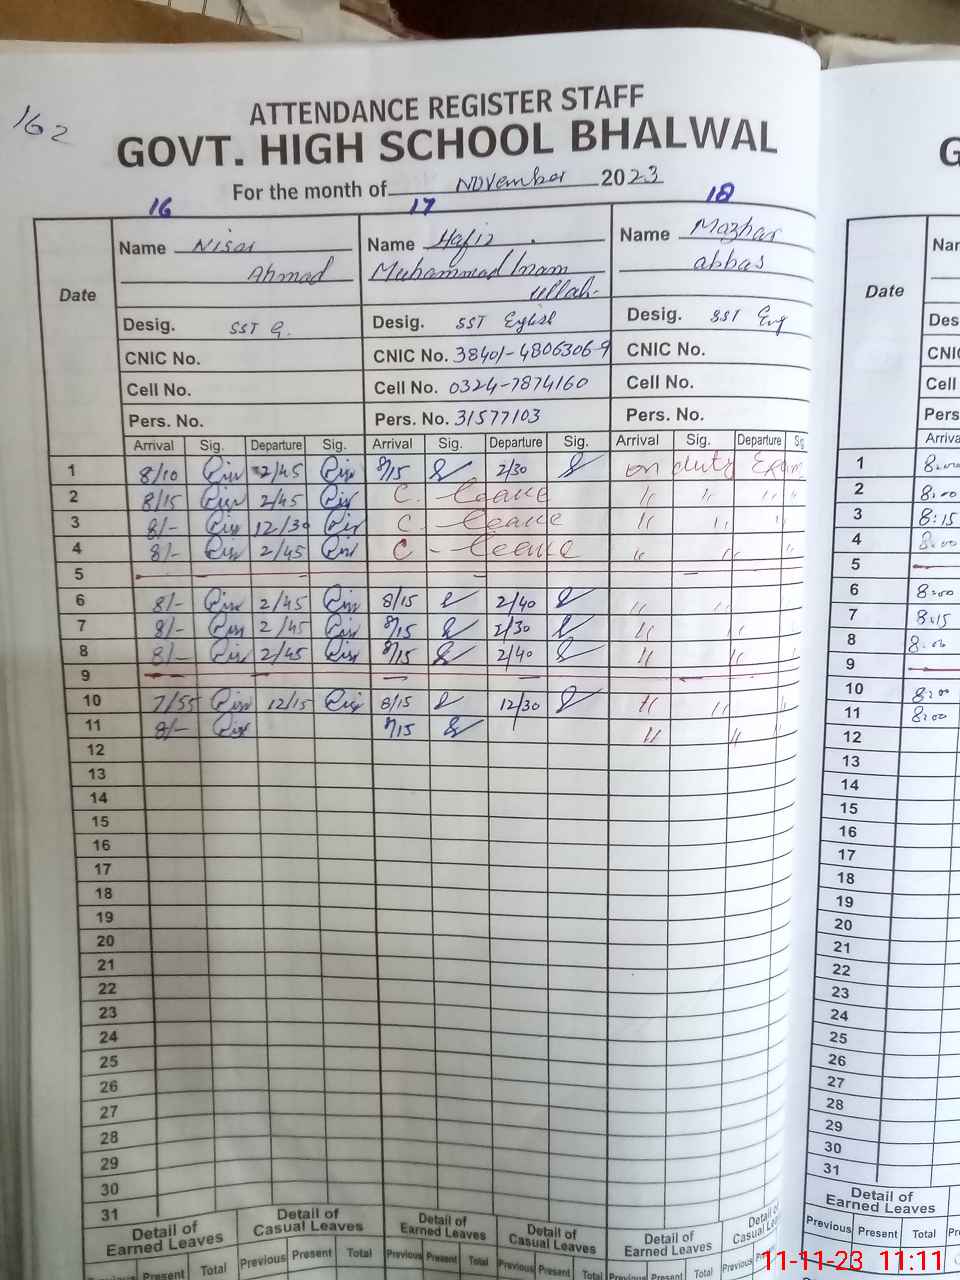 162
ATTENDANCE REGISTER STAFF
GOVT. HIGH SCHOOL BHALWAL
G
For the month of November 2023
16 17 18
Date Name Nisar Name Hafiz Name Mazhar
Ahmad Muhammad Inam abbas
ullah
Date Nar
Desig. SST G. Desig. SST English Desig. SST Eng Des
CNIC No. CNIC No. 38401-4806306-9 CNIC No. CNI
Cell No. Cell No. 0324-7874160 Cell No. Cell
Pers. No. Pers. No. 31577103 Pers. No. Pers
Arrival Sig. Departure Sig. Arrival Sig. Departure Sig. Arrival Sig. Departure Sig Arriva
1 8/10 2/45 8/15 2/30 on duty Exam 1 8:00
2 8/15 2/45 C. leave " " " " 2 8:00
3 8/- 12/30 C. leave " " " 3 8:15
4 8/- 2/45 C - leave " " " 4 8:00
5 5
6 8/- 2/45 8/15 2/40 " " 6 8:00
7 8/- 2/45 8/15 2/30 " " 7 8:15
8 8/- 2/45 8/15 2/40 " " " 8 8:00
9 9
10 7/55 12/15 8/15 12/30 " " " 10 8:00
11 8/- 7/15 " " " 11 8:00
12 12
13 13
14 14
15 15
16 16
17 17
18 18
19 19
20 20
21 21
22 22
23 23
24 24
25 25
26 26
27 27
28 28
29 29
30 30
31 31
Detail of Earned Leaves Detail of Casual Leaves Detail of Earned Leaves Detail of Casual Leaves Detail of Earned Leaves Detail of Casual L Detail of Earned Leaves
Previous Present Total Previous Present Total Previous Present Total Previous Present Total Previous Present Total Previous Previous Present Total
11-11-23 11:11